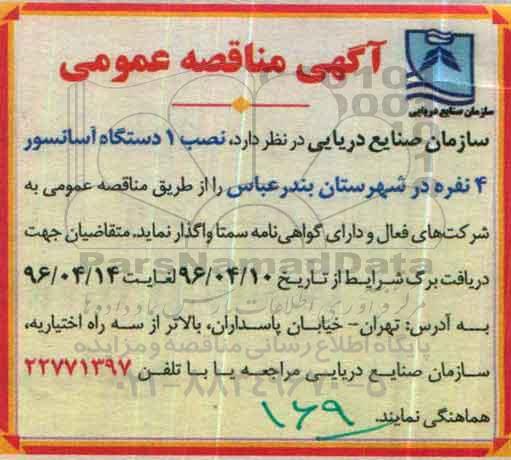 آگهی مناقصه عمومی
سازمان صنایع دریایی
سازمان صنایع دریایی در نظر دارد، نصب ۱ دستگاه آسانسور
۴ نفره در شهرستان بندرعباس را از طریق مناقصه عمومی به
شرکت‌های فعال و دارای گواهی‌نامه سمتا واگذار نماید. متقاضیان جهت
دریافت برگ شرایط از تاریخ ۹۶/۰۴/۱۰ لغایت ۹۶/۰۴/۱۴
به آدرس: تهران- خیابان پاسداران، بالاتر از سه راه اختیاریه،
سازمان صنایع دریایی مراجعه یا با تلفن ۲۲۷۷۱۳۹۷
هماهنگی نمایند.
۱۶۹
ParsNamadData
پایگاه اطلاع رسانی مناقصه و مزایده
۰۲۱-۸۸۳۴۹۶۷۰-۵